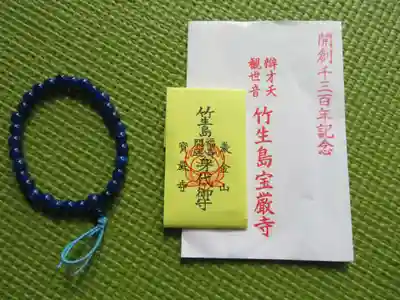 開創千三百年記念
辨才天
観世音
竹生島宝厳寺
巌金山
竹生島
身代御守
寳厳寺